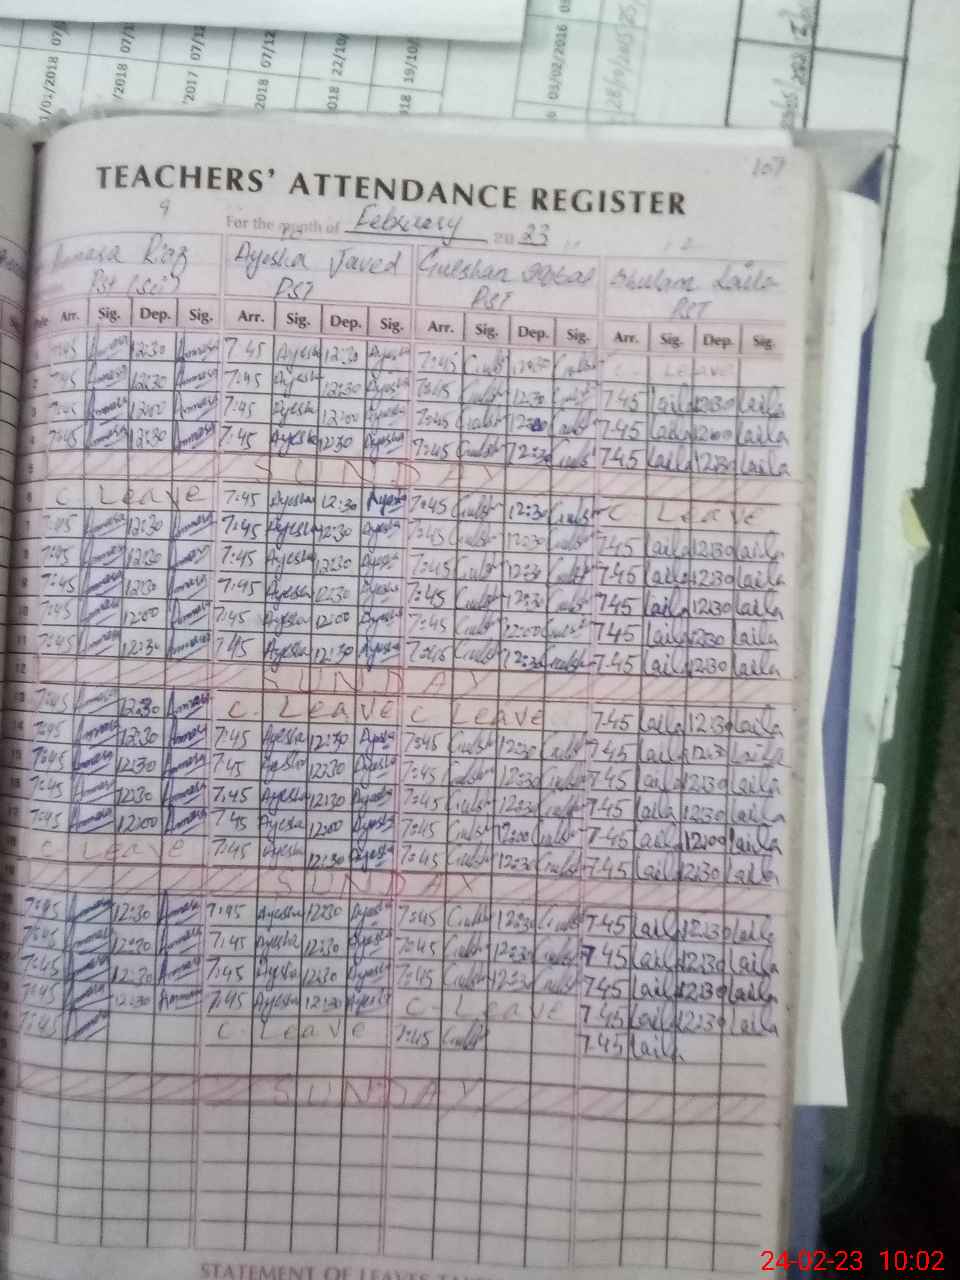 1/01/2018 07/
2018 07/1
2017 07/12
2018 07/12
2018 22/10/
018 19/10/
03/02/2016
107
TEACHERS' ATTENDANCE REGISTER
9
For the month of February 2023
Ammara Riaz Ayesha Javed Gulshan Iqbal Ghulam Laila
PST (Sci) PST PST PST
Arr. Sig. Dep. Sig. Arr. Sig. Dep. Sig. Arr. Sig. Dep. Sig. Arr. Sig. Dep. Sig.
1 7:45 Ammara 12:30 Ammara 7:45 Ayesha 12:30 Ayesha 7:45 Gulsh 12:30 Gulsh C. Leave
2 7:45 Ammara 12:30 Ammara 7:45 Ayesha 12:30 Ayesha 7:45 Gulsh 12:30 Gulsh 7:45 laila 12:30 laila
3 7:45 Ammara 12:00 Ammara 7:45 Ayesha 12:00 Ayesha 7:45 Gulsh 12:00 Gulsh 7:45 laila 12:00 laila
4 7:45 Ammara 12:30 Ammara 7:45 Ayesha 12:30 Ayesha 7:45 Gulsh 12:30 Gulsh 7:45 laila 12:30 laila
5 SUNDAY
6 C. Leave 7:45 Ayesha 12:30 Ayesha 7:45 Gulsh 12:30 Gulsh C. Leave
7 7:45 Ammara 12:30 Ammara 7:45 Ayesha 12:30 Ayesha 7:45 Gulsh 12:30 Gulsh 7:45 laila 12:30 laila
8 7:45 Ammara 12:30 Ammara 7:45 Ayesha 12:30 Ayesha 7:45 Gulsh 12:30 Gulsh 7:45 laila 12:30 laila
9 7:45 Ammara 12:30 Ammara 7:45 Ayesha 12:30 Ayesha 7:45 Gulsh 12:30 Gulsh 7:45 laila 12:30 laila
10 7:45 Ammara 12:00 Ammara 7:45 Ayesha 12:00 Ayesha 7:45 Gulsh 12:00 Gulsh 7:45 laila 12:30 laila
11 7:45 Ammara 12:30 Ammara 7:45 Ayesha 12:30 Ayesha 7:45 Gulsh 12:30 Gulsh 7:45 laila 12:30 laila
12 SUNDAY
13 7:45 Ammara 12:30 Ammara C. Leave C Leave 7:45 laila 12:30 laila
14 7:45 Ammara 12:30 Ammara 7:45 Ayesha 12:30 Ayesha 7:45 Gulsh 12:30 Gulsh 7:45 laila 12:30 laila
15 7:45 Ammara 12:30 Ammara 7:45 Ayesha 12:30 Ayesha 7:45 Gulsh 12:30 Gulsh 7:45 laila 12:30 laila
16 7:45 Ammara 12:30 Ammara 7:45 Ayesha 12:30 Ayesha 7:45 Gulsh 12:30 Gulsh 7:45 laila 12:30 laila
17 7:45 Ammara 12:00 Ammara 7:45 Ayesha 12:00 Ayesha 7:45 Gulsh 12:00 Gulsh 7:45 laila 12:00 laila
C Leave 7:45 Ayesha 12:30 Ayesha 7:45 Gulsh 12:30 Gulsh 7:45 laila 12:30 laila
SUNDAY
7:45 Ammara 12:30 Ammara 7:45 Ayesha 12:30 Ayesha 7:45 Gulsh 12:30 Gulsh 7:45 laila 12:30 laila
7:45 Ammara 12:30 Ammara 7:45 Ayesha 12:30 Ayesha 7:45 Gulsh 12:30 Gulsh 7:45 laila 12:30 laila
7:45 Ammara 12:30 Ammara 7:45 Ayesha 12:30 Ayesha 7:45 Gulsh 12:30 Gulsh 7:45 laila 12:30 laila
7:45 Ammara 12:30 Ammara 7:45 Ayesha 12:30 Ayesha C. Leave 7:45 laila 12:30 laila
7:45 Ammara C. Leave 7:45 Gulsh 7:45 laila
SUNDAY
STATEMENT OF LEAVES
24-02-23 10:02